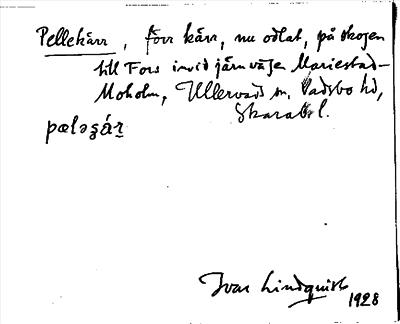 Pellekärr, förr kärr, nu odlat, på skogen
till Fors invid järnvägen Mariestad-
Moholm, Ullervads sn, Vadsbo hd,
Skarab. l.
pæləʒár̠
Ivar Lindquist
1928